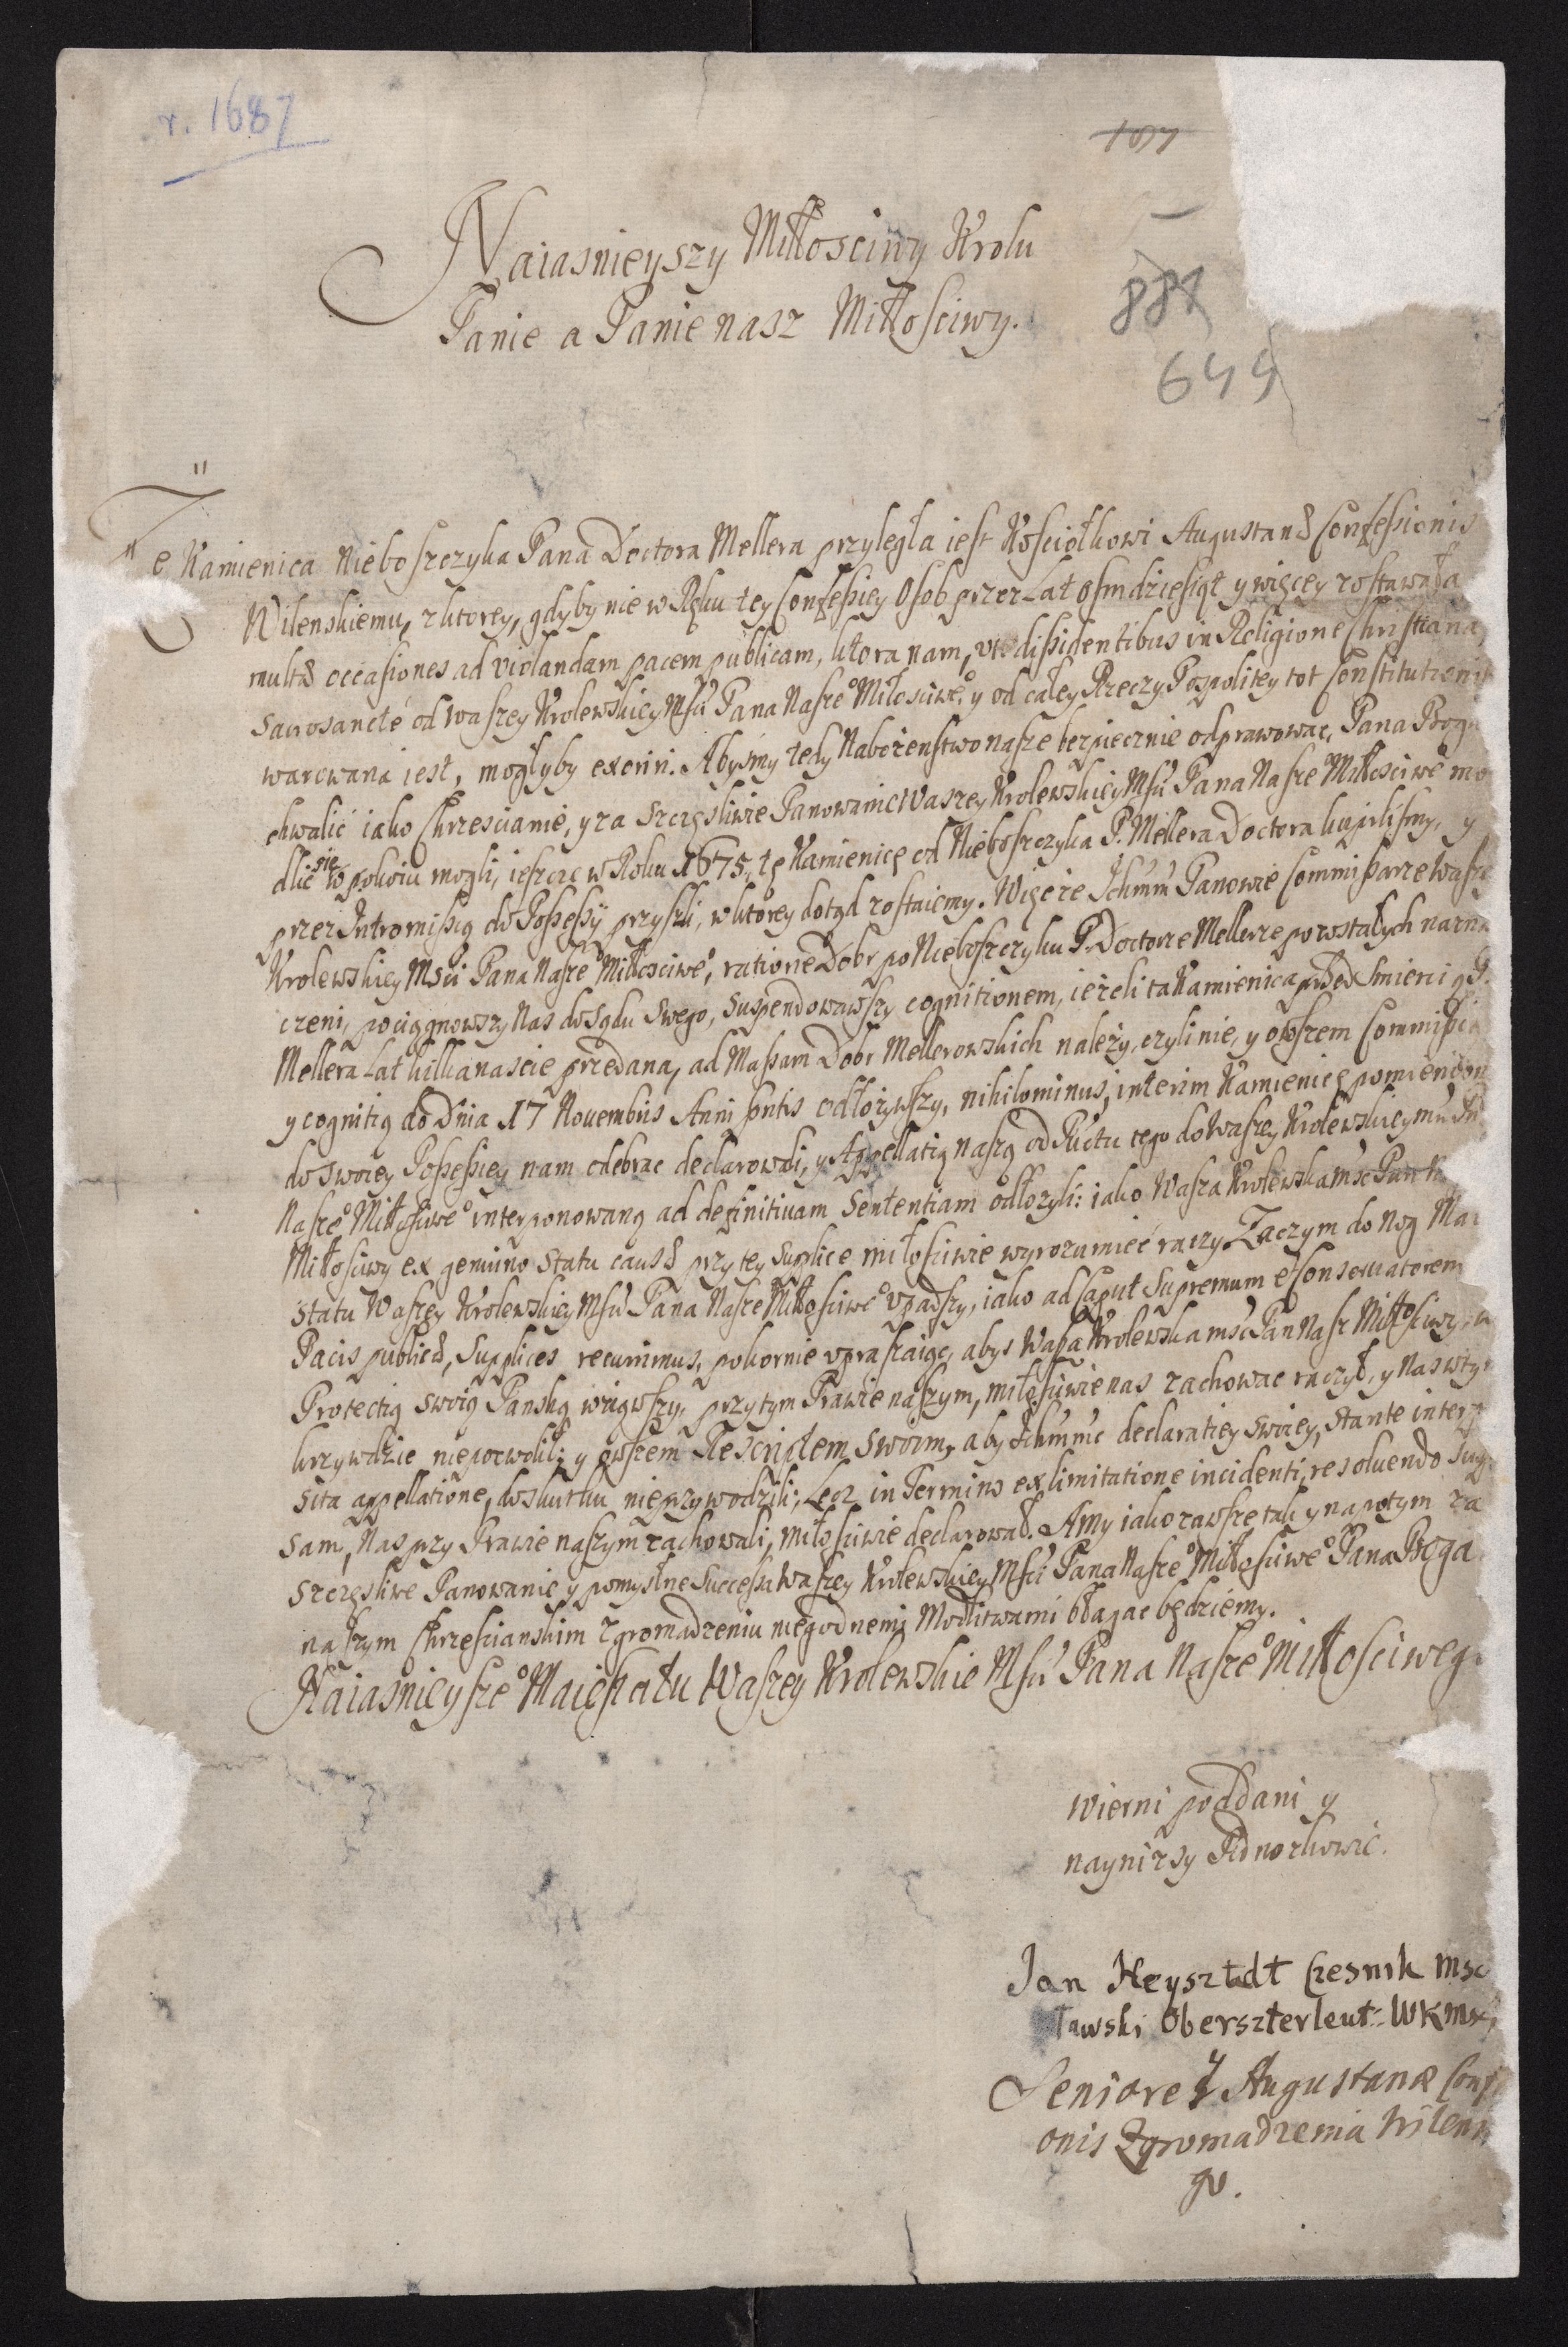 r. 1687
107
Naiasnieyszy Miłosciwy Krolu
Panie a Panie nasz Miłosciwy.
887
649
Że Kamienica Nieboszczyka Pana Doctora Mellera przyległa iest Kosciołkowi Augustanæ Confessionis
Wilenskiemu, z ktorey, gdyby nie w Ręku tey Confessiey Osob przez Lat osmdziesiąt y więcey zostawała
multæ occasiones ad violandam pacem publicam, ktora nam, vti dissidentibus in Religione Christiana
sacrosancte od Waszey Krolewskiey Msci Pana Nasze° Miłosciwe° y od całey Rzeczy Pospolitey tot Constitutioni
warowana iest, mogłyby exoriri. Abysmy tedy Nabożenstwo nasze bezpiecznie odprawowac, Pana Boga
chwalić iako Chrzescianie, y za szczęsliwie Panowanie Waszey Krolewskiey Msci Pana Nasze Miłosciwe mo
dlic się w pokoiu mogli, ieszcze w Roku 1675. tę Kamienicę od Nieboszczyka P. Mellera Doctora kupilismy, y
przez Intromissią do Possessÿ przyszli, w ktorey dotąd zostaiemy. Więc że Ichmm Panowie Commissarze Wasze
Krolewskiey Msci Pana Nasze° Miłosciwe°, ratione Dobr po Nieboszczyku P. Doctorze Mellerze pozostałych nazna
czeni, pociągnowszy Nas do Sądu swego, suspendowawszy cognitionem, ieżeli ta Kamienica przed Smierci ą P.
Mellera Lat kilkanascie przedana, ad Massam Dobr Mellerowskich należy, czyli nie, y owszem Commissią
y cognitią do Dnia 17 Novembris Anni pntis odłożywszy, nihilominus, interim Kamienicę pomienion
do swoiey Possessiey nam odebrac declarowali, y Appellatią naszą od Punctu tego do Waszey Krolewskiey
Nasze° Miłosciwe° interponowaną ad definitivam Sententiam odłożyli: iako Wasza Krolewska msc Pan
Miłosciwy ex genuino statu causæ przy tey Supplice miłosciwie wyrozumieć raczy. Zaczym do Nog Maie
statu Waszey Krolewskiey Msci Pana Nasze Miłosciwe° vpadszy, iako ad Caput Supremum et Conservatorem
Pacis publicæ, Supplices recurrimus, pokornie vpraszaiąc, abys Wasza Krolewska msc Pan Nasz Miłosciwy, w
Protectią swoią Panską wziąwszy, przy tym Prawie naszym, miłosciwie nas zachowac raczył, y nas w tym
krzywdzie niepozwolił; y owszem Rescriptem swoim, aby Ichmmc declaratiey swoiey, stante interpo
sita appellatione, do skutku nieprzywodzili; Lecz in Termino ex limitatione incidenti, resoluendo
sam, Nas przy Prawie naszym zachowali, miłosciwie declarował. A My iako zawsze tak y napotym za
szczęsliwe Panowanie y pomyslne Successa Waszey Krolewskiey Msci Pana Nasze° Miłosciwe° Pana Boga
naszym Chrzescianskim Zgromadzeniu niegodnemi Modlitwami błagac będziemy.
Naiasnieysze° Maiestatu Waszey Krolewskie Msci Pana Nasze° Miłosciweg
wierni poddani y
naynizsy Podnozkowie.
Jan Heysztedt Czesnik Msc
ławski Oberszterleut: WKMsc,
Seniorey Augustanæ Conf
onis Zgromadzenia Wilens
go.